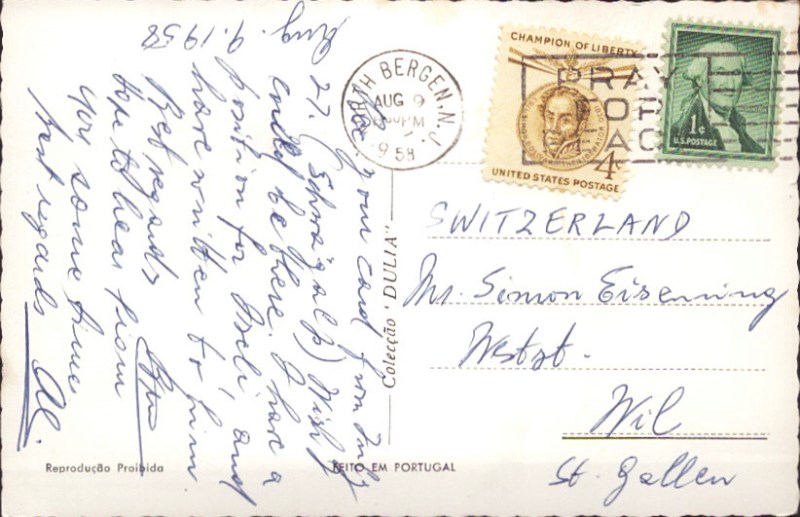 Aug. 9. 1958
your card from July
27. (Schwägalp) Wish I
could be there. I have a
position for and
have written to him
Best regards
hope to hear from
you some time
best regards
BERGEN, N.J.
AUG 9
PM
1958
PRAY
FOR
CHAMPION OF LIBERTY
4¢
UNITED STATES POSTAGE
1¢
U.S. POSTAGE
Colecção "DULIA"
SWITZERLAND
Mr. Simon Eisenring
Westst.
Wil
St. Gallen
Reprodução Proibida
FEITO EM PORTUGAL